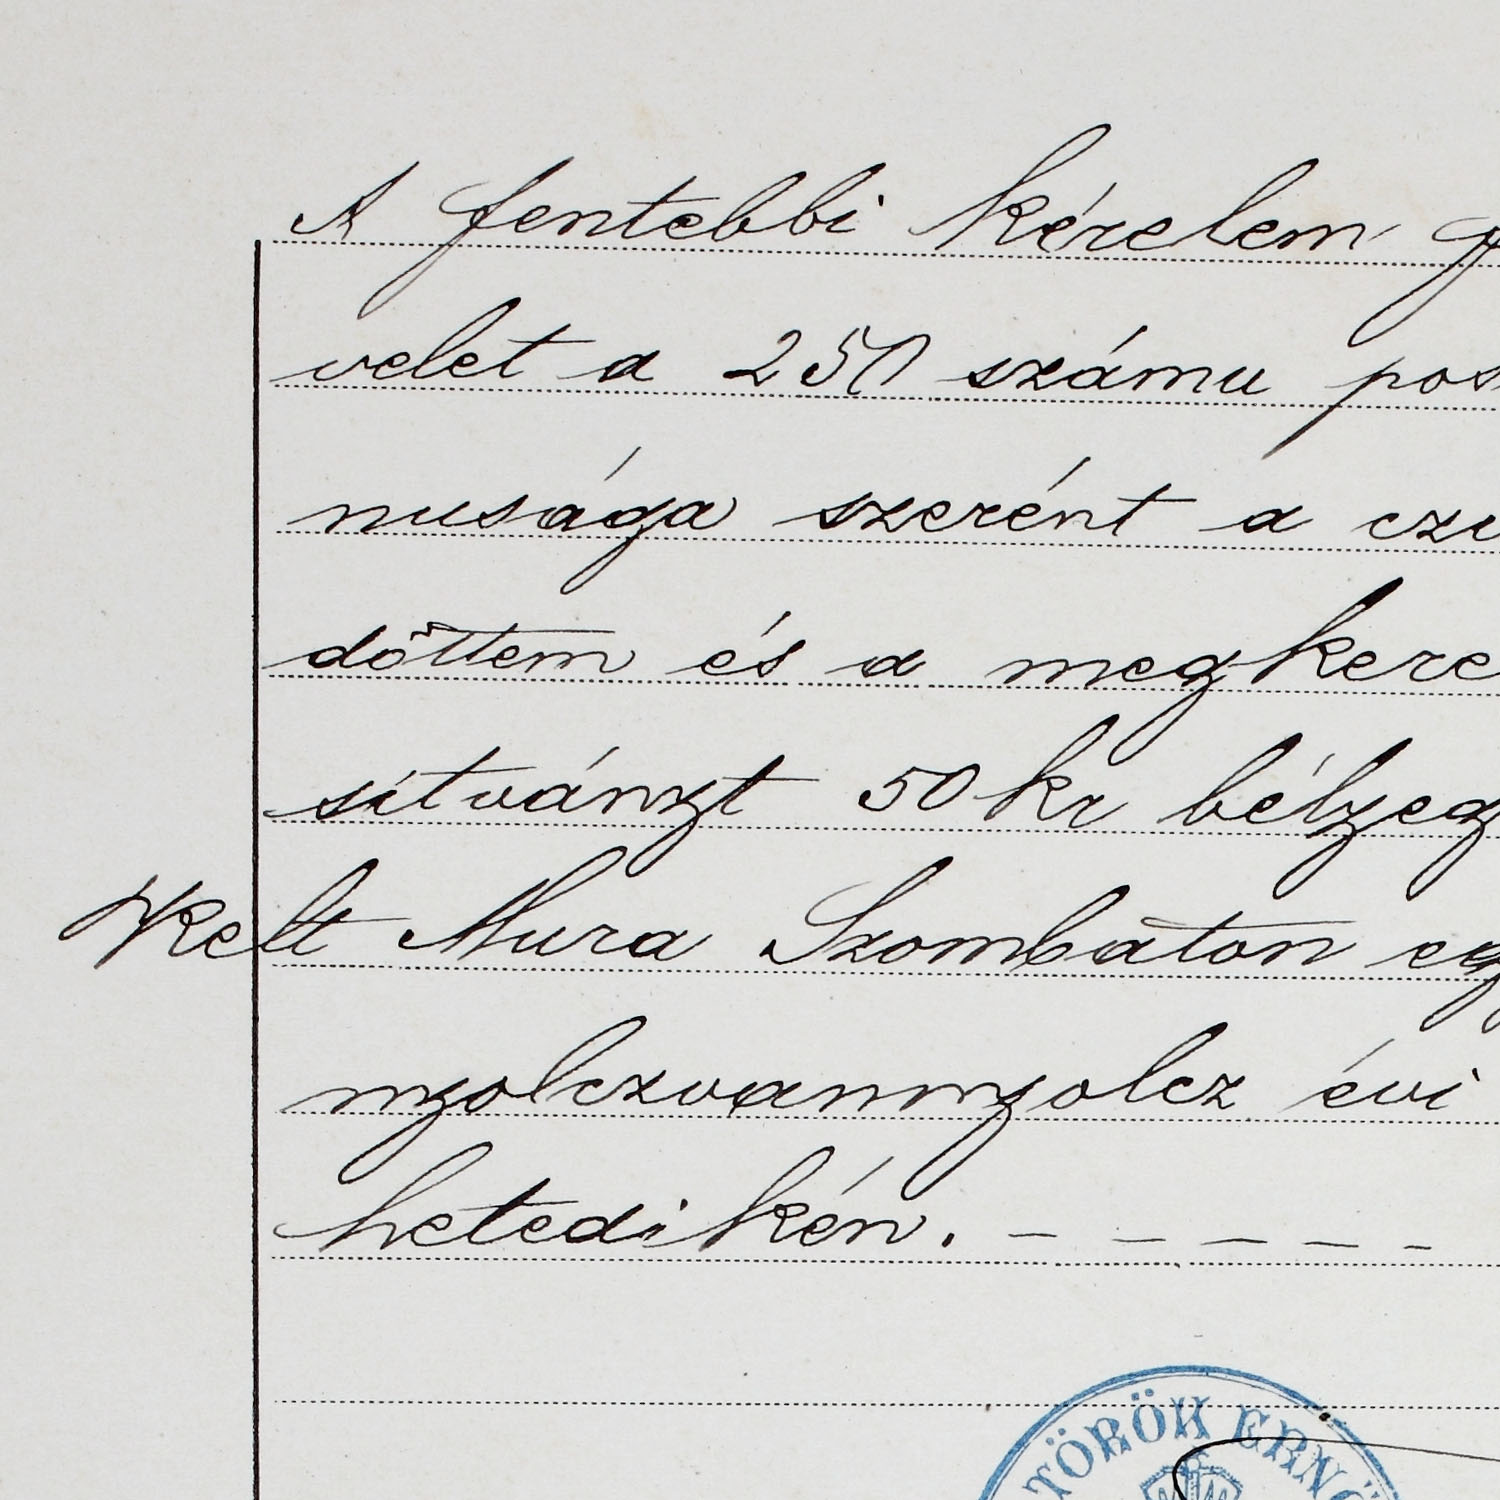 A fentebbi kérelem
velet a 250 számu pos
nusága szerént a czé
döttem és a megkere
sitványt 50 kr bélyeg
Kelt Mura Szombaton eg
nyolczvannyolcz évi
hetedikén. – – – – –
TÖRÖK ERNŐ